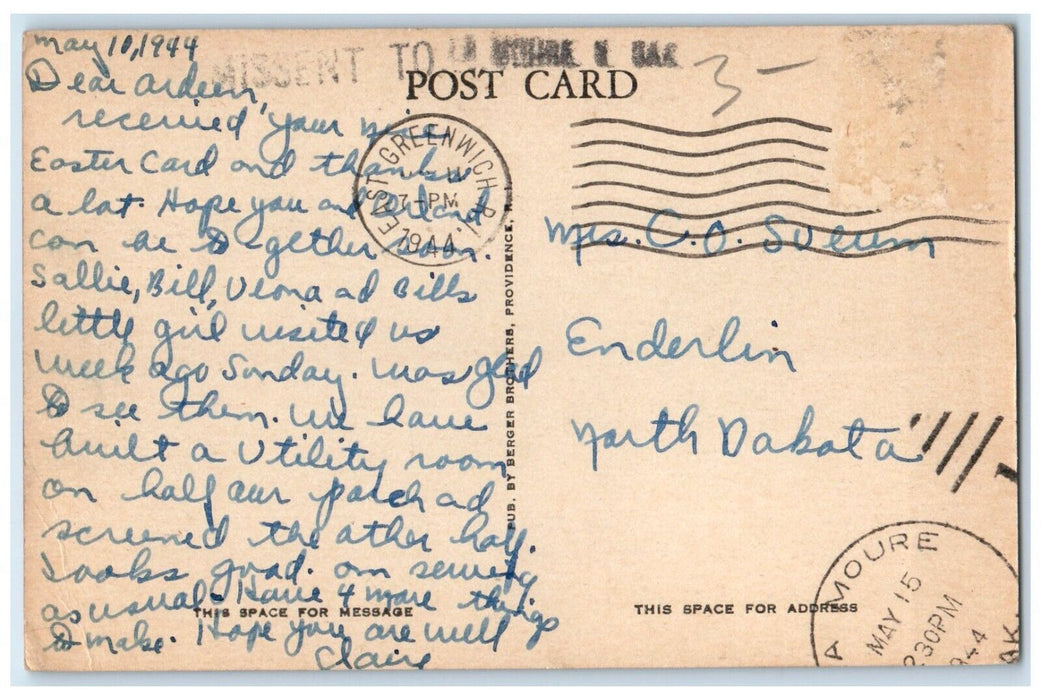 May 10, 1944
MISSENT TO LA MOURE N. DAK
POST CARD
3-
Dear Ardeen,
received your nice
Easter Card and thanks
a lot. Hope you and
can be together soon.
Sallie, Bill, Veona ad Bills
little girl visited us
week ago Sunday. Was glad
to see them. We have
built a Utility room
on half our porch ad
screened the other half.
Looks good. Am sewing
as usual. Have 4 more things
to make. Hope you are well
Claire
EAST GREENWICH R.I.
7-PM
1944
PUB. BY BERGER BROTHERS, PROVIDENCE, R. I.
Mrs. C. O. Sveum
Enderlin
North Dakota
THIS SPACE FOR MESSAGE
THIS SPACE FOR ADDRESS
A MOURE
MAY 15
230PM
944
AK.